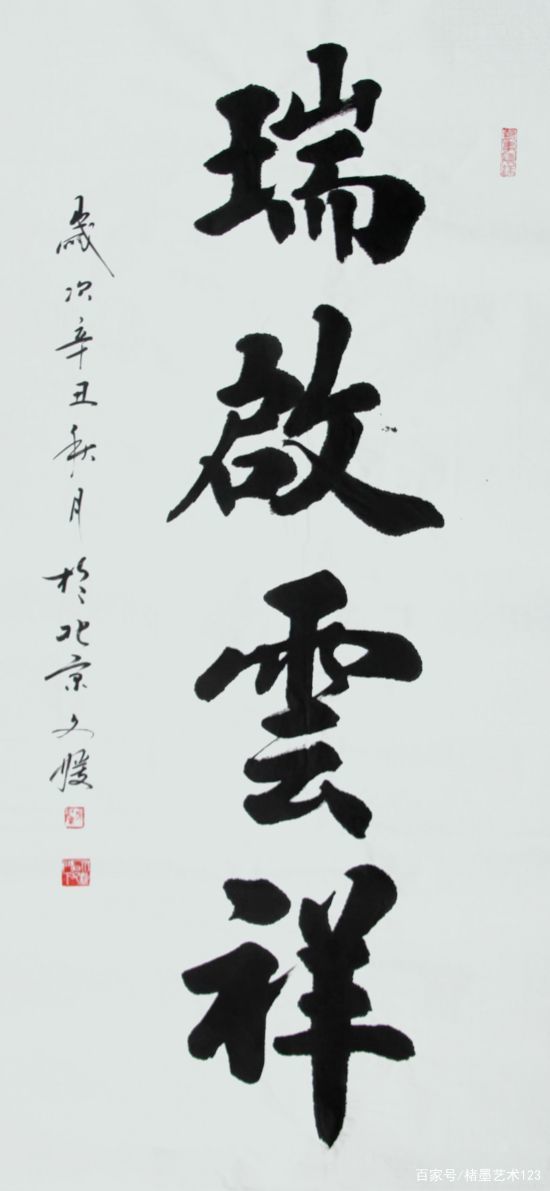 瑞啟雲祥
歲次辛丑秋月於北京文媛
百家号/楮墨艺术123